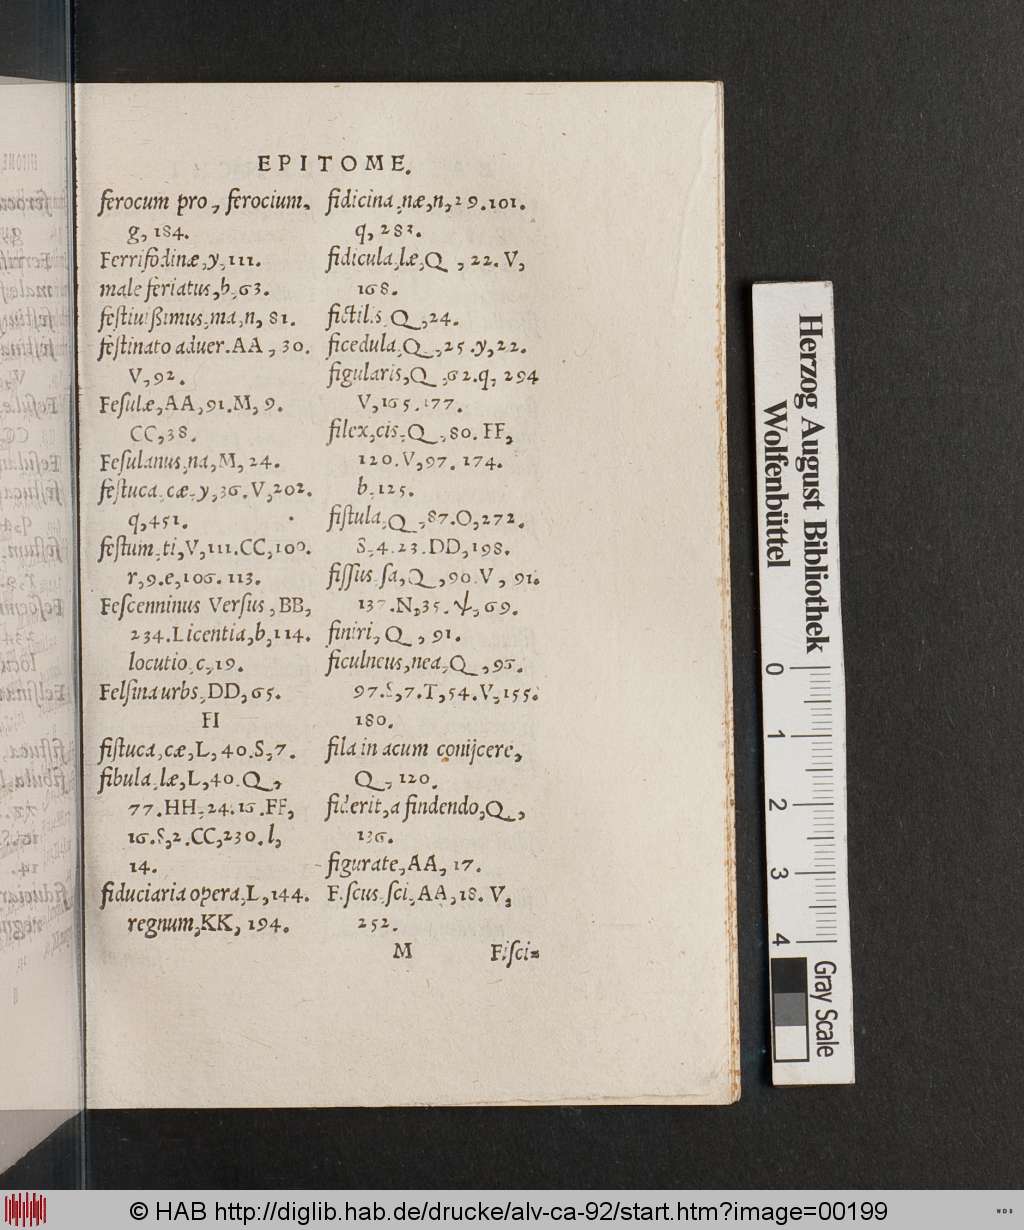 EPITOME.
ferocum pro, ferocium.
g, 184.
Ferrifodinæ, y, 111.
male feriatus, b, 63.
festiuißimus, ma, n, 81.
festinato aduer. AA, 30.
V, 92.
Fesulæ, AA, 91. M, 9.
CC, 38.
Fesulanus, na, M, 24.
festuca, cæ, y, 36. V, 202.
q, 451.
festum, ti, V, 111. CC, 100.
r, 9. e, 106. 113.
Fescenninus Versus, BB,
234. Licentia, b, 114.
locutio, c, 19.
Felsina urbs, DD, 65.
FI
fistuca, cæ, L, 40. S, 7.
fibula, læ, L, 40. Q,
77. HH, 24. 16. FF,
16. S, 2. CC, 230. l,
14.
fiduciaria opera, L, 144.
regnum, KK, 194.
fidicina, næ, n, 29. 101.
q, 283.
fidicula, læ, Q, 22. V,
168.
fictilis, Q, 24.
ficedula, Q, 25. y, 22.
figularis, Q, 62. q, 294
V, 165. 177.
filex, cis, Q, 80. FF,
120. V, 97. 174.
b, 125.
fistula, Q, 87. O, 272.
S, 4. 23. DD, 198.
fissus, sa, Q, 90. V, 91.
137. N, 35. Ψ, 69.
finiri, Q, 91.
ficulneus, nea, Q, 95.
97. S, 7. T, 54. V, 155.
180.
fila in acum conijcere,
Q, 120.
fiderit, a findendo, Q,
136.
figurate, AA, 17.
Fiscus, sci, AA, 18. V,
252.
M Fisci=
Herzog August Bibliothek
Wolfenbüttel
0 1 2 3 4
Gray Scale
© HAB http://diglib.hab.de/drucke/alv-ca-92/start.htm?image=00199
WDB